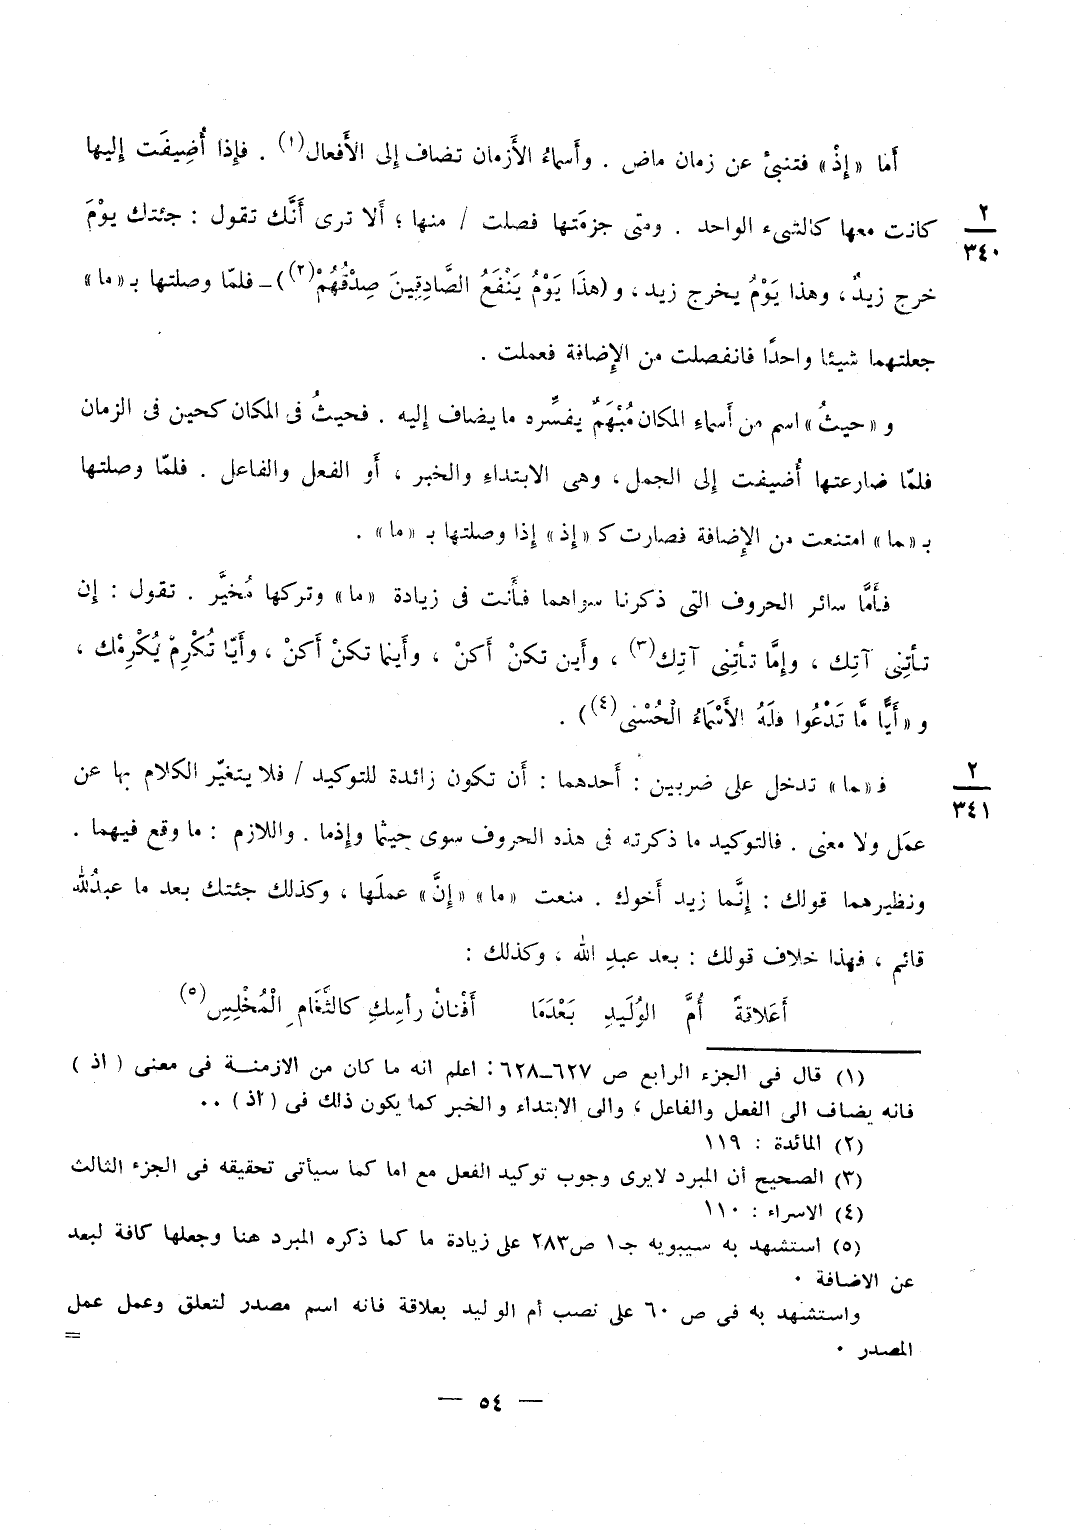 أَما «إِذْ» فتنبئُ عن زمان ماض . وأَسماءُ الأَزمان تضاف إلى الأَفعال(١) . فإِذا أُضِيفَت إِليها
كانت معها كالشىء الواحد . ومتى جزمَتها فصلت / منها ؛ أَلا ترى أَنَّك تقول : جئتك يوْمَ
٢
٣٤٠
خرج زيدٌ ، وهذا يَوْمُ يخرج زيد ، و (هذَا يَوْمُ يَنْفَعُ الصَّادِقِينَ صِدْقُهُمْ(٢)) ـ فلمّا وصلتها بـ «ما»
جعلتهما شيئا واحدًا فانفصلت من الإِضافة فعملت .
و «حيثُ» اسم من أَسماءِ المكان مُبْهَمٌ يفسِّره ما يضاف إِليه . فحيثُ فى المكان كحين فى الزمان
فلمّا ضارعتها أُضيفت إِلى الجمل ، وهى الابتداءِ والخبر ، أَو الفعل والفاعل . فلمّا وصلتها
بـ «ما» امتنعت من الإِضافة فصارت كـ «إِذ» إِذا وصلتها بـ «ما» .
فأَمَّا سائر الحروف التى ذكرنا سواهما فأَنت فى زيادة «ما» وتركها مُخيَّر . تقول : إِن
تأْتِنِى آتِك ، وإِمَّا تأْتِنِى آتِك(٣) ، وأَين تكنْ أَكنْ ، وأَينما تكنْ أَكنْ ، وأَيّا تُكْرِمْ يُكْرِمْك ،
و «أَيًّا مَّا تَدْعُوا فلَهُ الأَسْمَاءُ الْحُسْنى(٤)) .
فـ «ما» تدخل على ضربين : أَحدهما : أَن تكون زائدة للتوكيد / فلا يتغيّر الكلام بها عن
٢
٣٤١
عمَل ولا معنى . فالتوكيد ما ذكرته فى هذه الحروف سوى حيثما وإِذما . واللازم : ما وقع فيهما .
ونظيرهما قولك : إِنَّما زيد أَخوك . منعت «ما» «إِنَّ» عملَها ، وكذلك جئتك بعد ما عبدُ الله
قائم ، فهذا خلاف قولك : بعد عبدِ الله ، وكذلك :
أَعَلاقةً أُمَّ الوُلَيدِ بَعْدَمَا أَفْنانُ رأسِكِ كالثَّغَامِ الْمُخْلِسِ(٥)
(١) قال فى الجزء الرابع ص ٦٢٧ــ٦٢٨ : اعلم انه ما كان من الازمنة فى معنى ( اذ )
فانه يضاف الى الفعل والفاعل ، والى الابتداء والخبر كما يكون ذلك فى ( اذ ) ..
(٢) المائدة : ١١٩
(٣) الصحيح أن المبرد لايرى وجوب توكيد الفعل مع اما كما سيأتى تحقيقه فى الجزء الثالث
(٤) الاسراء : ١١٠
(٥) استشهد به سيبويه جـ١ ص٢٨٣ على زيادة ما كما ذكره المبرد هنا وجعلها كافة لبعد
عن الاضافة ٠
واستشهد به فى ص ٦٠ على نصب أم الوليد بعلاقة فانه اسم مصدر لتعلق وعمل عمل
المصدر ٠
=
— ٥٤ —